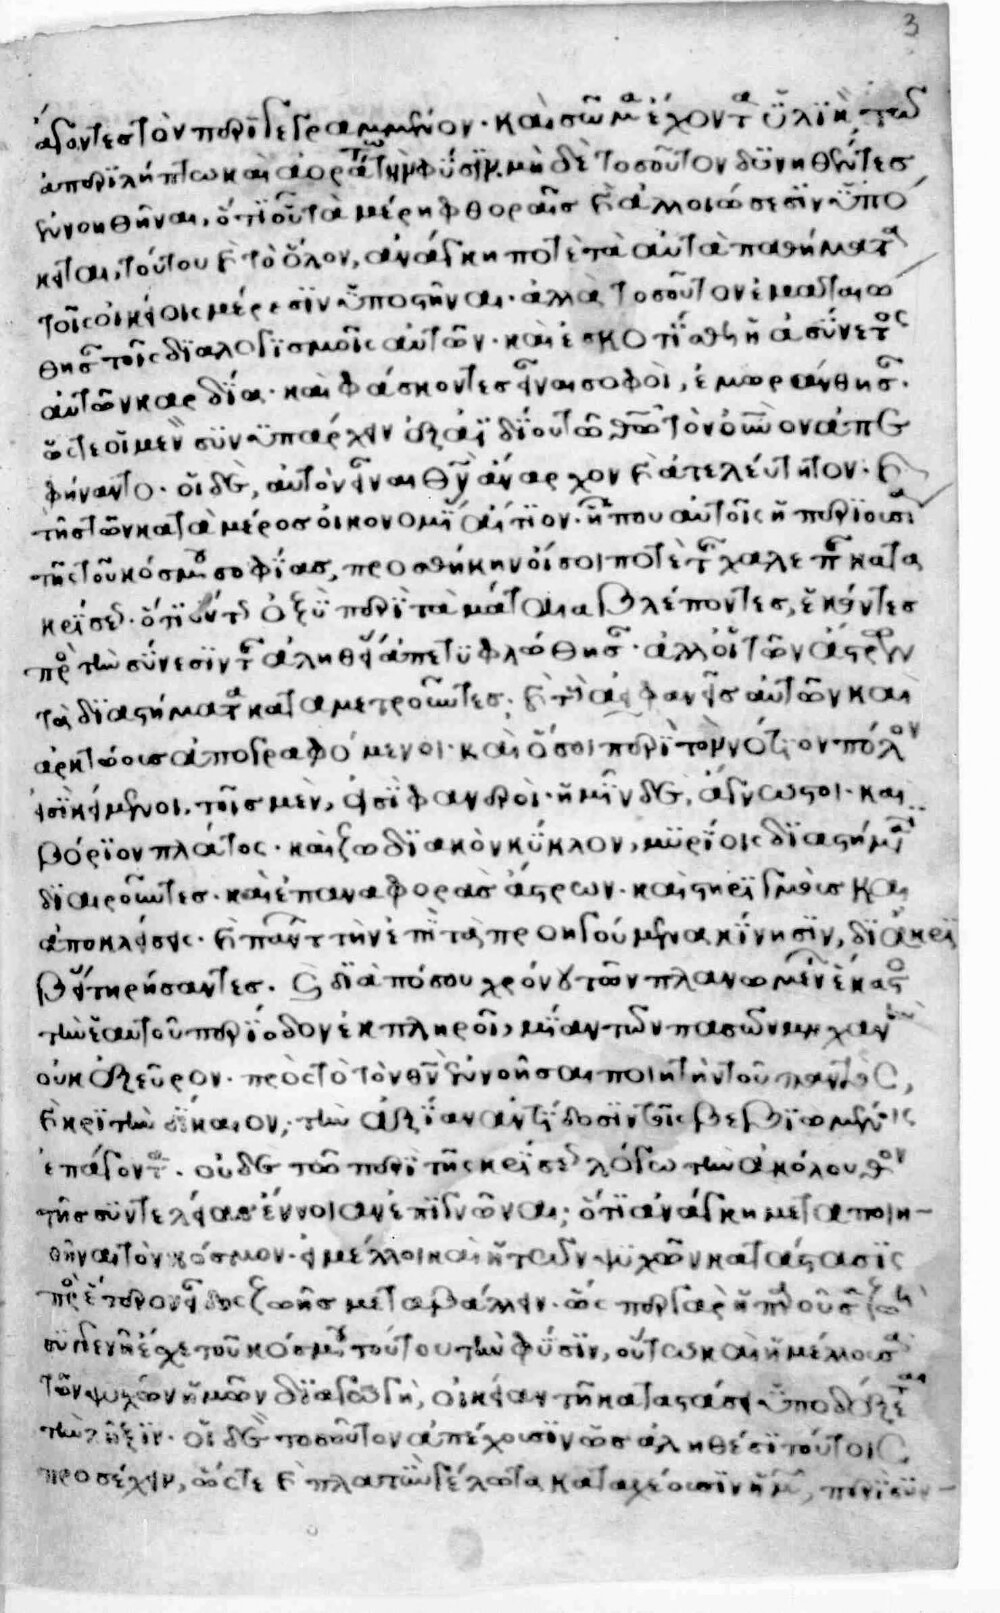 3
ἄγοντες τὸν περιγεγραμμένον· καὶ σῶμα ἔχοντα ὑλικὸν τῷ
ἀπεριλήπτῳ καὶ ἀοράτῳ τὴν φύσιν· μὴ δὲ τοσοῦτον δυνηθέντες
ἐννοηθῆναι, ὅτι οὗ τὰ μέρη φθοραῖς καὶ ἀλλοιώσεσιν ὑπό
κειται, τούτου καὶ τὸ ὅλον, ἀνάγκη ποτὲ τὰ αὐτὰ παθήματα
τοῖς οἰκείοις μέρεσιν ὑποστῆναι· ἀλλὰ τοσοῦτον ἐματαιώ
θησαν τοῖς διαλογισμοῖς αὐτῶν· καὶ ἐσκοτίσθη ἡ ἀσύνετος
αὐτῶν καρδία· καὶ φάσκοντες εἶναι σοφοὶ, ἐμωράνθησαν·
ὥστε οἱ μὲν συνυπάρχειν ἐξ ἀϊδίου τῷ θεῷ τὸν οὐρανὸν ἀπε
φήναντο· οἱ δὲ, αὐτὸν εἶναι θεὸν ἄναρχον καὶ ἀτελεύτητον· καὶ
τῆς τῶν κατὰ μέρος οἰκονομίας αἴτιον· ἦ που αὐτοῖς ἡ περιουσία
τῆς τοῦ κόσμου σοφίας, προσθήκην οἴσει ποτὲ τῆς χαλεπῆς κατα
κρίσεως· ὅτι οὕτως ὀξὺ περὶ τὰ μάταια βλέποντες, ἑκόντες
πρὸς τὴν σύνεσιν τῆς ἀληθείας ἀπετυφλώθησαν· ἀλλ' οἱ τῶν ἄστρων
τὰ διαστήματα καταμετροῦντες· καὶ τοὺς ἀειφανεῖς αὐτῶν καὶ
ἀρκτῴους ἀπογραφόμενοι· καὶ ὅσοι περὶ τὸν νότιον πόλον
κείμενοι, τοῖς μὲν, εἰσὶ φανεροὶ· ἡμῖν δὲ, ἄγνωστοι· καὶ
βόριον πλάτος· καὶ ζωδιακὸν κύκλον, μυρίοις διαστήμασι
διαιροῦντες· καὶ ἐπαναφορὰς ἄστρων· καὶ στηριγμοὺς καὶ
ἀποκλίσεις· καὶ πάντων τὴν ἐπὶ τὰ προηγούμενα κίνησιν, δι' ἀκρι
βείας τηρήσαντες· καὶ διὰ πόσου χρόνου τῶν πλανωμένων ἕκαστος
τὴν ἑαυτοῦ περίοδον ἐκπληροῖ, μίαν τῶν πασῶν μηχανὴν
οὐκ ἐξεῦρον· πρὸς τὸ τὸν θεὸν ἐννοῆσαι ποιητὴν τοῦ παντὸς,
καὶ κριτὴν δίκαιον, τὴν ἀξίαν ἀντίδοσιν τοῖς βεβιωμένοις
ἐπάγοντα· οὐδὲ τοῦ περὶ τῆς κρίσεως λόγου τὴν ἀκόλουθον
τῆς συντελείας ἔννοιαν ἐπιγνῶναι; ὅτι ἀνάγκη μεταποιη-
θῆναι τὸν κόσμον· εἰ μέλλοι καὶ ἡ τῶν ψυχῶν κατάστασις
πρὸς ἕτερον εἶδος ζωῆς μεταβάλλειν· ὥσπερ γὰρ ἡ παροῦσα ζωὴ
συγγενῆ ἔσχε τοῦ κόσμου τούτου τὴν φύσιν, οὕτω καὶ ἡ μέλλουσα
τῶν ψυχῶν ἡμῶν διαγωγὴ, οἰκείαν τῇ καταστάσει ὑποδέξεται
τὴν λῆξιν· οἱ δὲ τοσοῦτον ἀπέχουσιν ὡς ἀληθέσι τούτοις
προσέχειν, ὥστε καὶ πλατὺν γέλωτα καταχέουσιν ἡμῶν, περὶ συν-